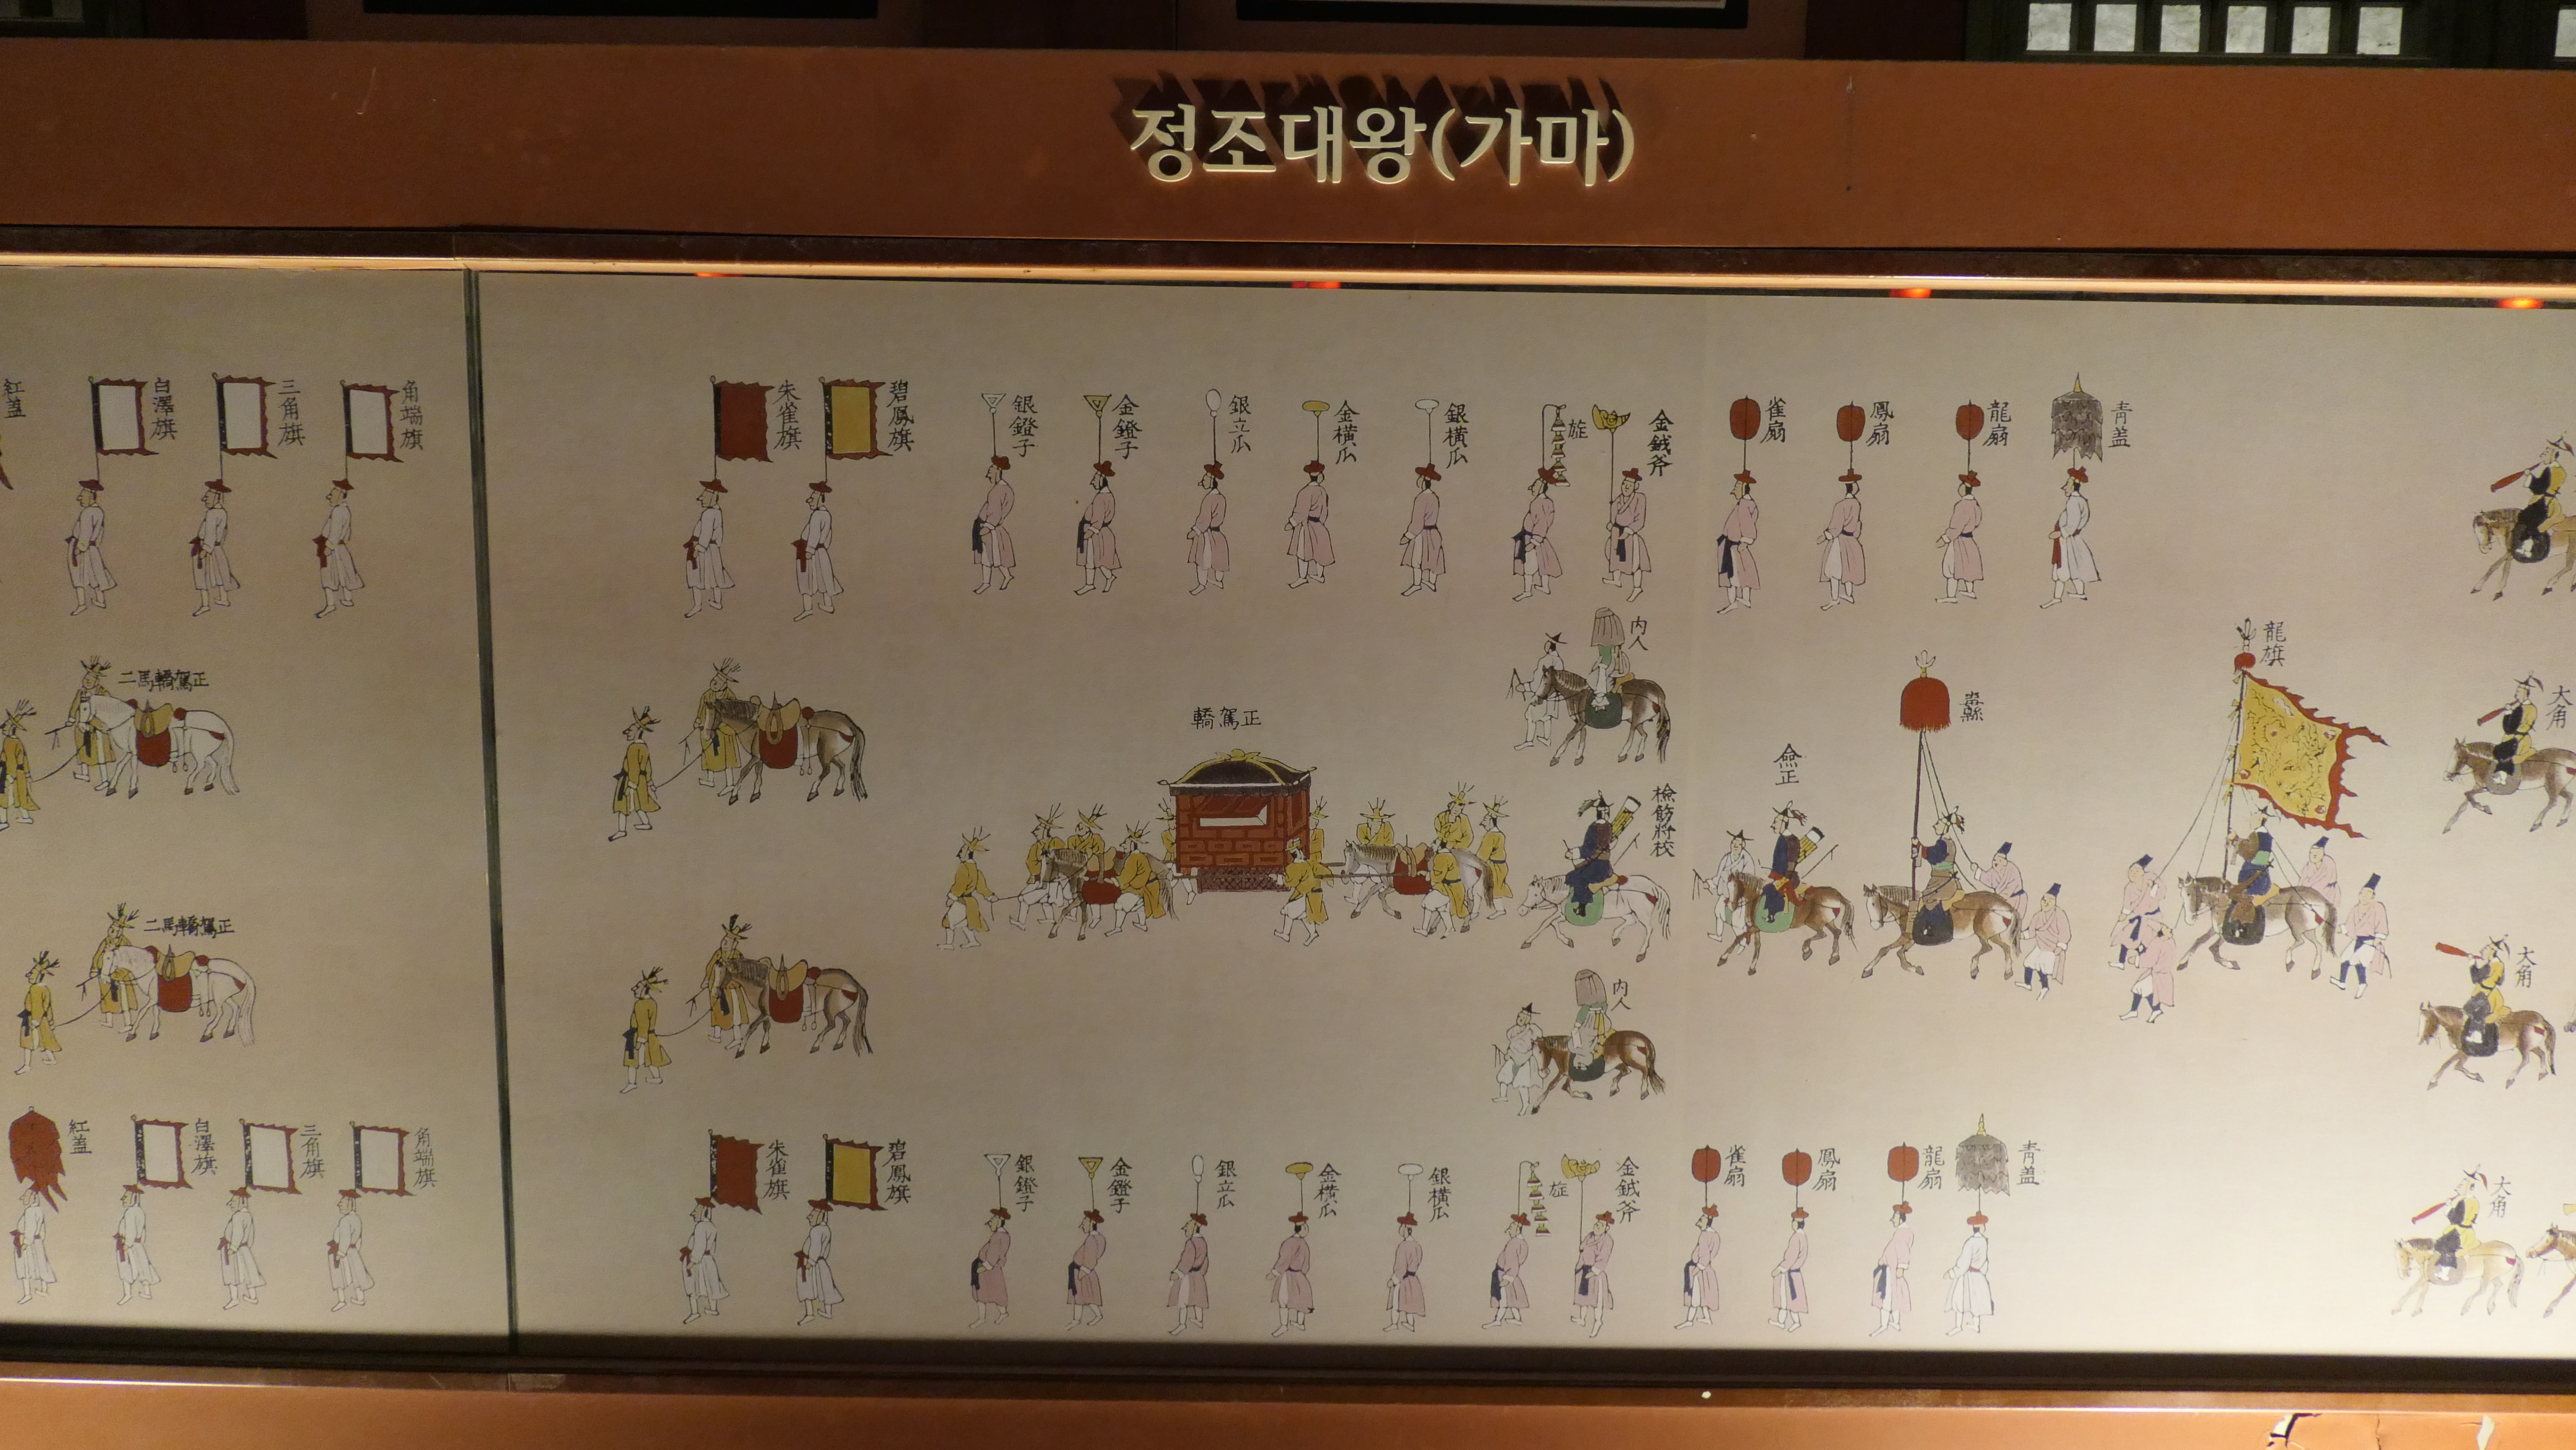 정조대왕(가마)
紅盖
白澤旗
三角旗
角端旗
朱雀旗
碧鳳旗
銀鐙子
金鐙子
銀立瓜
金橫瓜
銀橫瓜
旌
金鉞斧
雀扇
鳳扇
龍扇
青盖
二馬轎駕正
轎駕正
内人
僉正
纛
龍旗
大角
二馬轎駕正
内人
大角
紅盖
白澤旗
三角旗
角端旗
朱雀旗
碧鳳旗
銀鐙子
金鐙子
銀立瓜
金橫瓜
銀橫瓜
旌
金鉞斧
雀扇
鳳扇
龍扇
青盖
大角